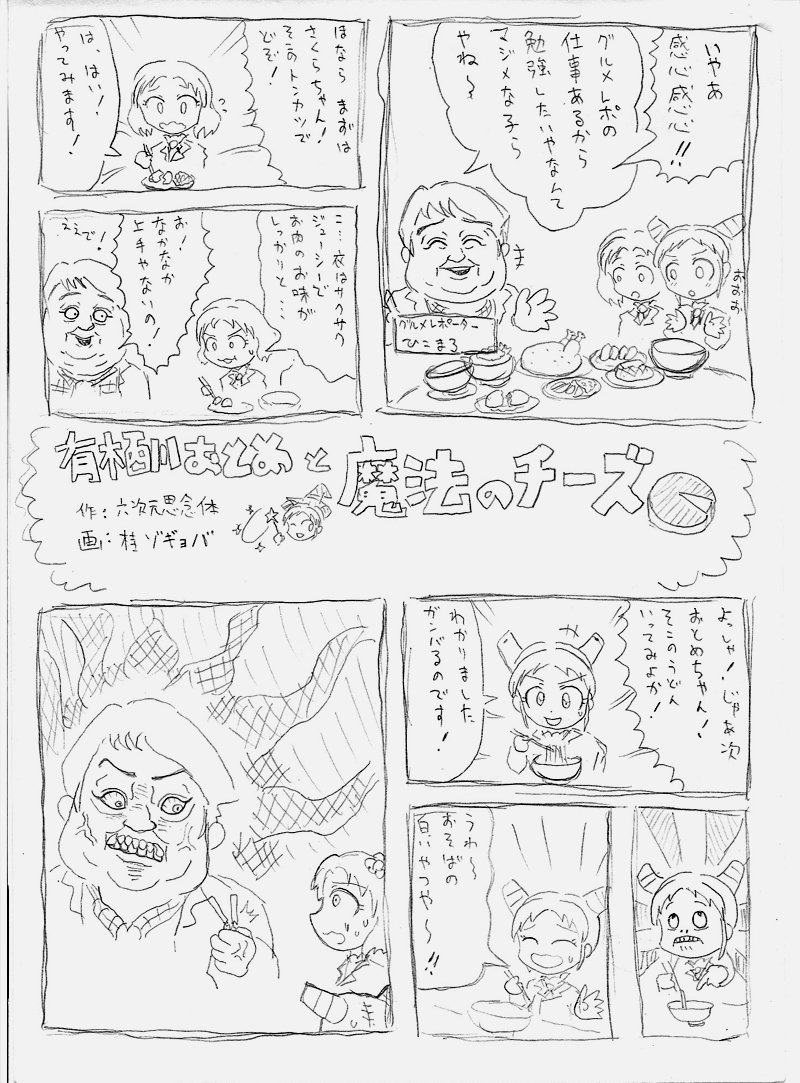 いやあ
感心感心!!
グルメレポの
仕事あるから
勉強したいやなんて
マジメな子ら
やね〜
おおお
グルメレポーター
ひこまろ
ほなら まずは
さくらちゃん!
そこのトンカツで
どぞ!
は、はい!
やってみます!
こ…衣はサクサク
ジューシーで
お肉のお味が
しっかりと…
お!
なかなか
上手やないの!
ええで!
有栖川おとめと
魔法のチーズ
作:六次元思念体
画:桂ゾギョバ
よっしゃ!じゃあ次
おとめちゃん!
そこのうどん
いってみよか!
わかりました
ガンバるのです!
うわ〜
おそばの
白いやつや〜!!